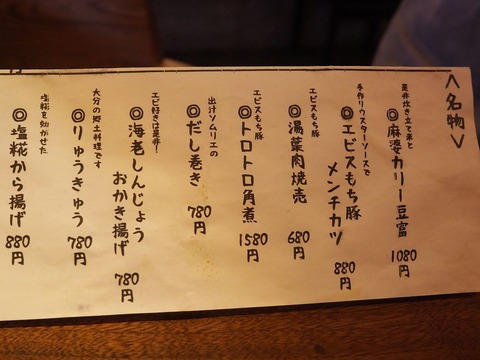 ＜名物＞
是非炊き立て米と
◎麻婆カリー豆富
1080円
手作りウスターソースで
◎エビスもち豚
メンチカツ
880円
エビスもち豚
◎湯葉肉焼売
680円
エビスもち豚
◎トロトロ角煮
1580円
出汁ソムリエの
◎だし巻き
780円
エビ好き是非！
◎海老しんじょう
おかき揚げ
780円
大分の郷土料理です
◎りゅうきゅう
780円
塩糀を効かせた
◎塩糀から揚げ
880円